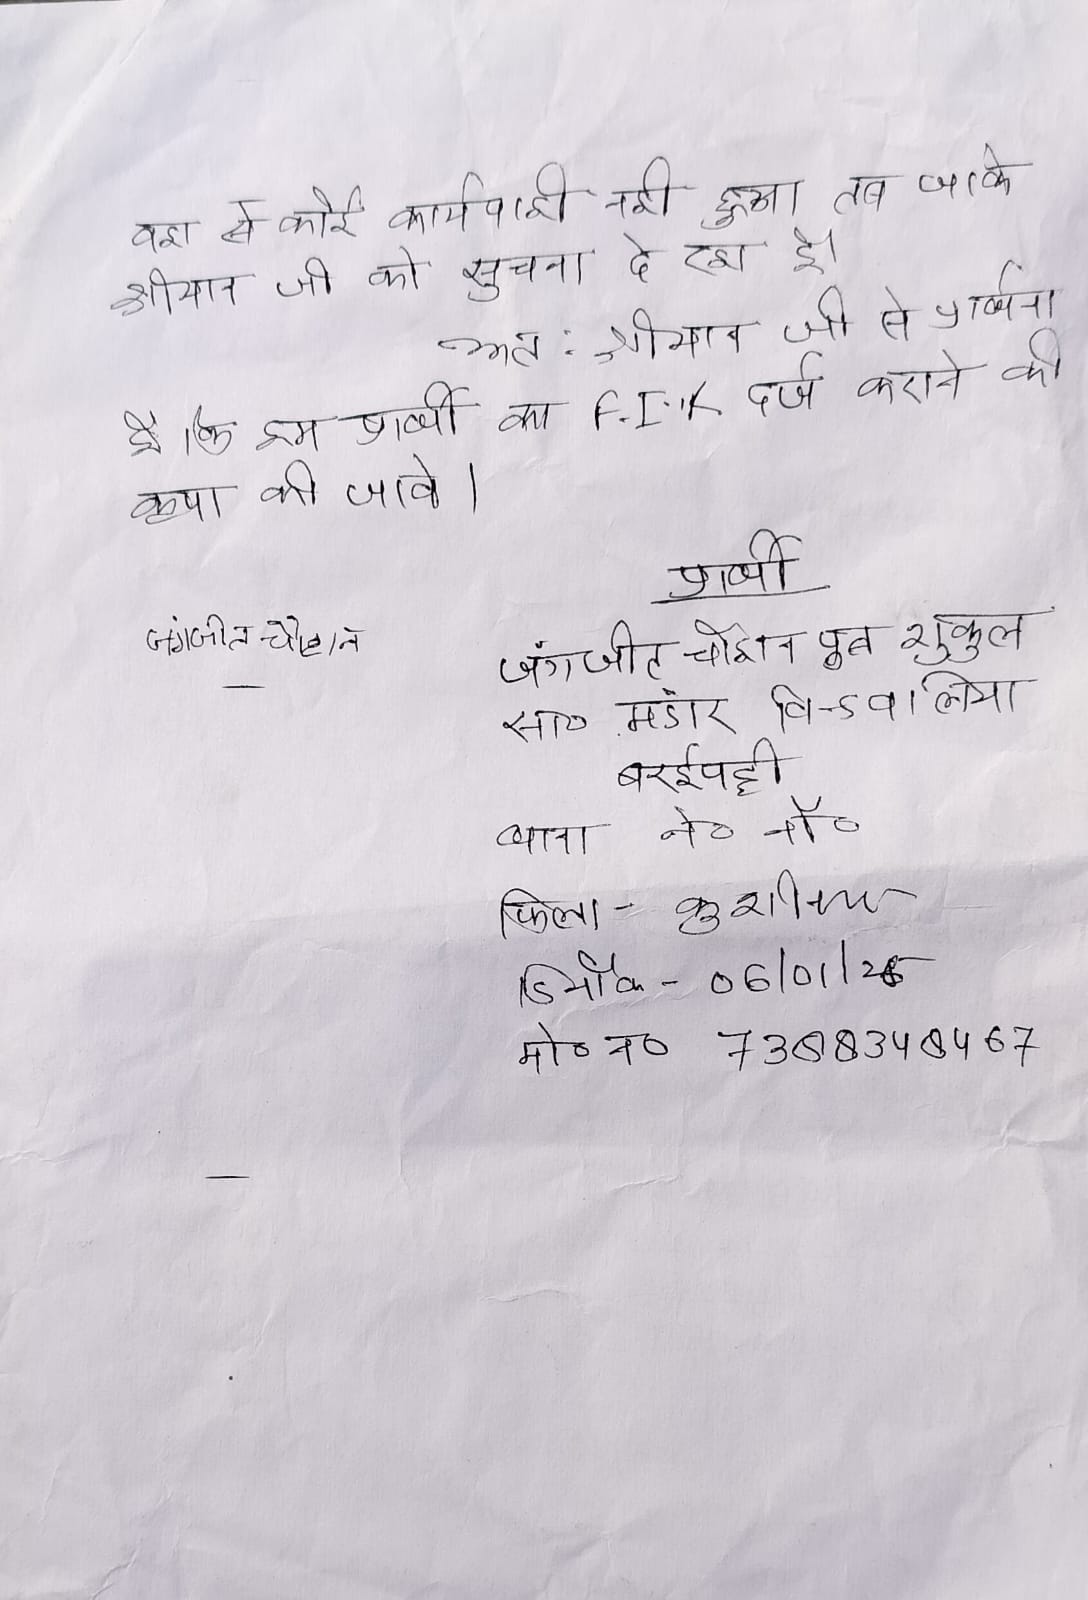 वहा से कोई कार्यवाही नही हुआ तब जाके
श्रीमान जी को सुचना दे रहा है।
अतः श्रीमान जी से प्रार्थना
है कि हम प्रार्थी का F.I.R दर्ज कराने की
कृपा की जावे।
प्रार्थी
जंगजीत चौहान
जंगजीत चौहान पुत्र शुकुल
सा० मडार विन्डवालिया
बरईपट्टी
थाना ने० नौ०
जिला - कुशीनगर
दिनाँक - 06/01/26
मो० न० 7388348467